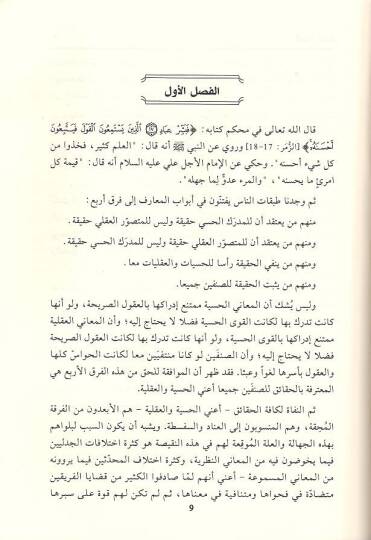 الفصل الأول
قال الله تعالى في محكم كتابه: ﴿فَبَشِّرْ عِبَادِ ۝ الَّذِينَ يَسْتَمِعُونَ الْقَوْلَ فَيَتَّبِعُونَ
أَحْسَنَهُ﴾ [الزُّمَر: 17-18] وروي عن النبي ﷺ أنه قال: "العلم كثير، فخذوا من
كل شيء أحسنه". وحكي عن الإمام الأجل علي عليه السلام أنه قال: "قيمة كل
امرئٍ ما يحسنه"، "والمرء عدوٌّ لِما جهله".
ثم وجدنا طبقات الناس يفتنّون في أبواب المعارف إلى فرق أربع:
منهم من يعتقد أن للمدرَك الحسي حقيقة وليس للمتصوَّر العقلي حقيقة.
ومنهم من يعتقد أن للمتصوَّر العقلي حقيقة وليس للمدرَك الحسي حقيقة.
ومنهم من ينفي الحقيقة رأسا للحسيات والعقليات معا.
ومنهم من يثبت الحقيقة للصنفين جميعا.
وليس يُشك أن المعاني الحسية ممتنع إدراكها بالعقول الصريحة، ولو أنها
كانت تدرك بها لكانت القوى الحسية فضلا لا يحتاج إليه؛ وأن المعاني العقلية
ممتنع إدراكها بالقوى الحسية، ولو أنها كانت تدرك بها لكانت العقول الصريحة
فضلا لا يحتاج إليه؛ وأن الصنفين لو كانا منتفيَين معا لكانت الحواسّ كلها
والعقول بأسرها لغواً وعبثا. فقد ظهر أن الموافقة للحق من هذه الفرق الأربع هي
المعترفة بالحقائق للصنفَين جميعا أعني الحسية والعقلية.
ثم النفاة لكافة الحقائق - أعني الحسية والعقلية - هم الأبعدون من الفرقة
المُحِقة، وهم المنسوبون إلى العناد والسفسطة. ويشبه أن يكون السبب لبلواهم
بهذه الجهالة والعلة المُوقِعة لهم في هذه النقيصة هو كثرة اختلافات الجدليين
فيما يخوضون فيه من المعاني النظرية، وكثرة اختلاف المحدّثين فيما يروونه
من المعاني المسموعة - أعني أنهم لمّا صادفوا الكثير من قضايا الفريقين
متضادّة في فحواها ومتنافية في معناها، ثم لم تكن لهم قوة على سبرها
9